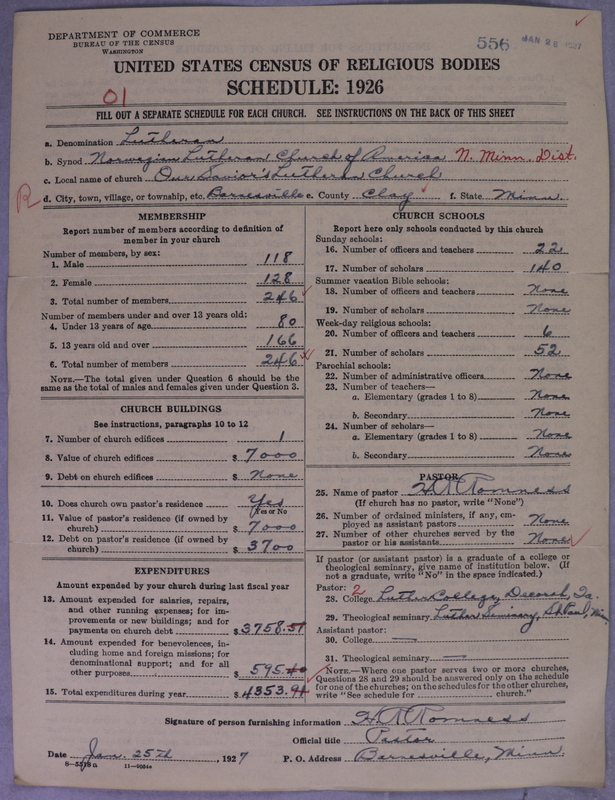 DEPARTMENT OF COMMERCE
BUREAU OF THE CENSUS
WASHINGTON
556 JAN 28 1927
UNITED STATES CENSUS OF RELIGIOUS BODIES
SCHEDULE: 1926
01
FILL OUT A SEPARATE SCHEDULE FOR EACH CHURCH. SEE INSTRUCTIONS ON THE BACK OF THIS SHEET
a. Denomination Lutheran
b. Synod Norwegian Lutheran Church of America N. Minn. Dist.
c. Local name of church Our Savior's Lutheran Church
R
d. City, town, village, or township, etc. Barnesville e. County Clay f. State Minn
MEMBERSHIP
Report number of members according to definition of
member in your church
Number of members, by sex:
1. Male 118
2. Female 128
3. Total number of members 246
Number of members under and over 13 years old:
4. Under 13 years of age 80
5. 13 years old and over 166
6. Total number of members 246
NOTE.—The total given under Question 6 should be the
same as the total of males and females given under Question 3.
CHURCH BUILDINGS
See instructions, paragraphs 10 to 12
7. Number of church edifices 1
8. Value of church edifices $ 7000
9. Debt on church edifices $ None
10. Does church own pastor's residence Yes
Yes or No
11. Value of pastor's residence (if owned by
church) $ 7000
12. Debt on pastor's residence (if owned by
church) $ 3700
EXPENDITURES
Amount expended by your church during last fiscal year
13. Amount expended for salaries, repairs,
and other running expenses; for im-
provements or new buildings; and for
payments on church debt $ 3758.51
14. Amount expended for benevolences, in-
cluding home and foreign missions; for
denominational support; and for all
other purposes $ 595.40
15. Total expenditures during year $ 4353.91
CHURCH SCHOOLS
Report here only schools conducted by this church
Sunday schools:
16. Number of officers and teachers 22
17. Number of scholars 140
Summer vacation Bible schools:
18. Number of officers and teachers None
19. Number of scholars None
Week-day religious schools:
20. Number of officers and teachers 6
21. Number of scholars 52
Parochial schools:
22. Number of administrative officers None
23. Number of teachers—
a. Elementary (grades 1 to 8) None
b. Secondary None
24. Number of scholars—
a. Elementary (grades 1 to 8) None
b. Secondary None
PASTOR
25. Name of pastor H A Romness
(If church has no pastor, write "None")
26. Number of ordained ministers, if any, em-
ployed as assistant pastors None
27. Number of other churches served by the
pastor or his assistants None
If pastor (or assistant pastor) is a graduate of a college or
theological seminary, give name of institution below. (If
not a graduate, write "No" in the space indicated.)
Pastor: 2
28. College Luther College, Decorah, Ia.
29. Theological seminary Luther Seminary, St Paul, Minn
Assistant pastor:
30. College —
31. Theological seminary —
NOTE.—Where one pastor serves two or more churches,
Questions 28 and 29 should be answered only on the schedule
for one of the churches; on the schedules for the other churches,
write "See schedule for church."
Signature of person furnishing information H A Romness
Official title Pastor
Date Jan. 25th, 1927 P. O. Address Barnesville, Minn.